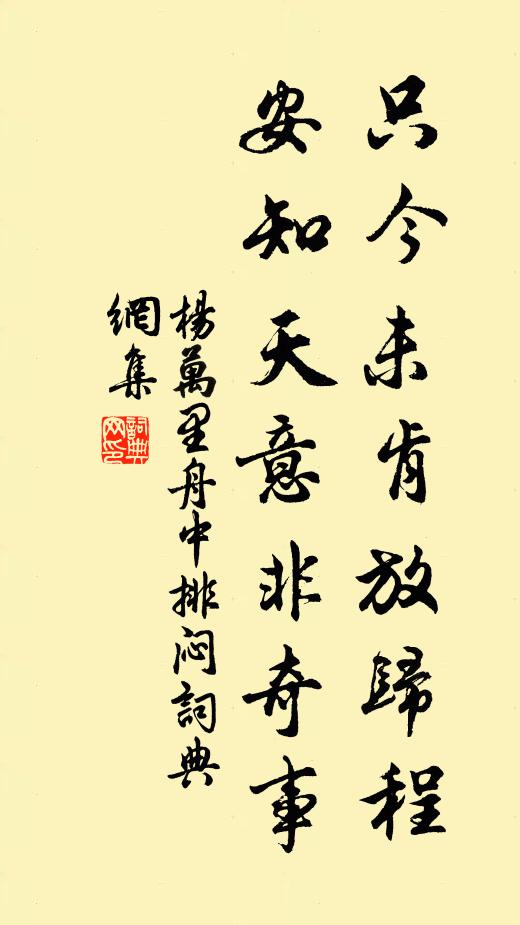 只今未肯放歸程
安知天意非奇事
楊萬里舟中排闷詞典
網集
詞典
网印